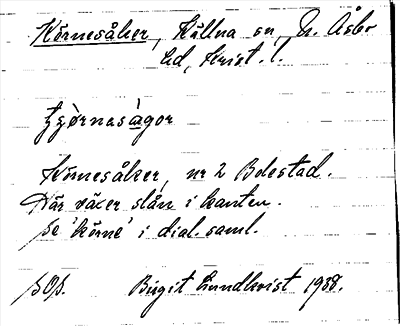 Körnesåker, Källna sn, N. Åsbo
hd, Krist. l.
Körnesåker, nr 2 Bolestad.
Där växer slån i kanten.
Se 'körne' i dial. saml.
Birgit Lundkvist 1938.